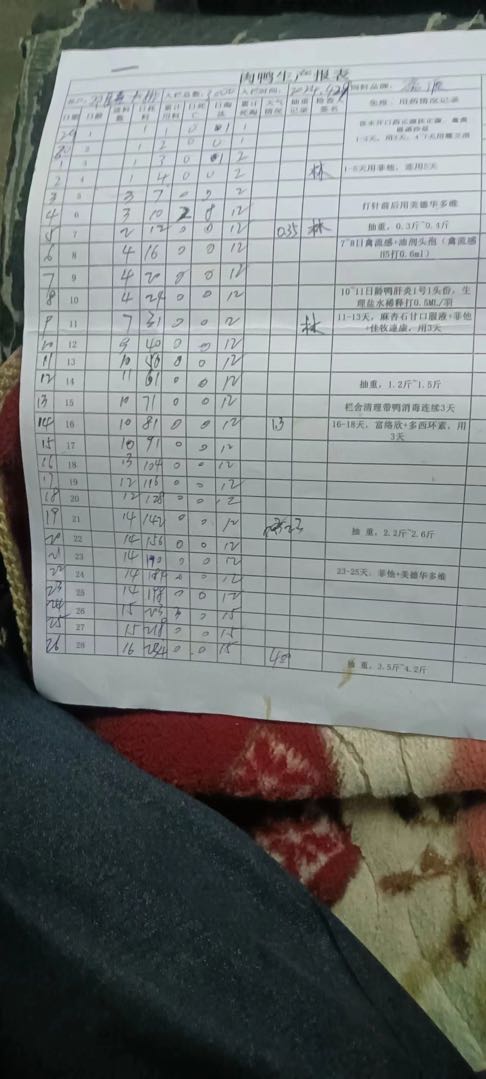 肉鸭生产报表
入栏总数: 3000 入栏时间: 2024.4.29 饲料品牌:
日期 日龄 日耗料 累计用料 日死亡 日淘汰 累计死淘 天气情况 抽重记录 检查签名 免疫、用药情况记录
29 1 1 1 0 1 1
30 2 1 2 0 0 1
1 3 1 3 0 1 2
2 4 1 4 0 0 2 林 1-5天用菲他,连用5天
3 5 3 7 0 0 2
4 6 3 10 2 8 12 打针前后用美德华多维
5 7 2 12 0 0 12 0.35 林 抽重,0.3斤~0.4斤
6 8 4 16 0 0 12 7~8日禽流感+油剂头孢(禽流感H5打0.6ml)
7 9 4 20 0 0 12
8 10 4 24 0 0 12 10~11日龄鸭肝炎1号1头份,生理盐水稀释打0.5ML/羽
9 11 7 31 0 0 12 林 11-13天,麻杏石甘口服液+菲他+佳牧速康,用3天
10 12 9 40 0 0 12
11 13 10 50 0 0 12
12 14 11 61 0 0 12 抽重,1.2斤~1.5斤
13 15 10 71 0 0 12 栏舍清理带鸭消毒连续3天
14 16 10 81 0 0 12 1.3 16-18天,富络欣+多西环素,用3天
15 17 10 91 0 0 12
16 18 13 104 0 0 12
17 19 12 116 0 0 12
18 20 12 128 0 0 12
19 21 14 142 0 0 12 抽 重,2.2斤~2.6斤
20 22 14 156 0 0 12
21 23 14 170 0 0 12
22 24 14 184 0 0 12 23-25天,菲他+美德华多维
23 25 14 198 0 0 12
24 26 15 3 0 15
25 27 15 218 0 0 15
26 28 16 234 0 0 15 抽 重,3.5斤~4.2斤